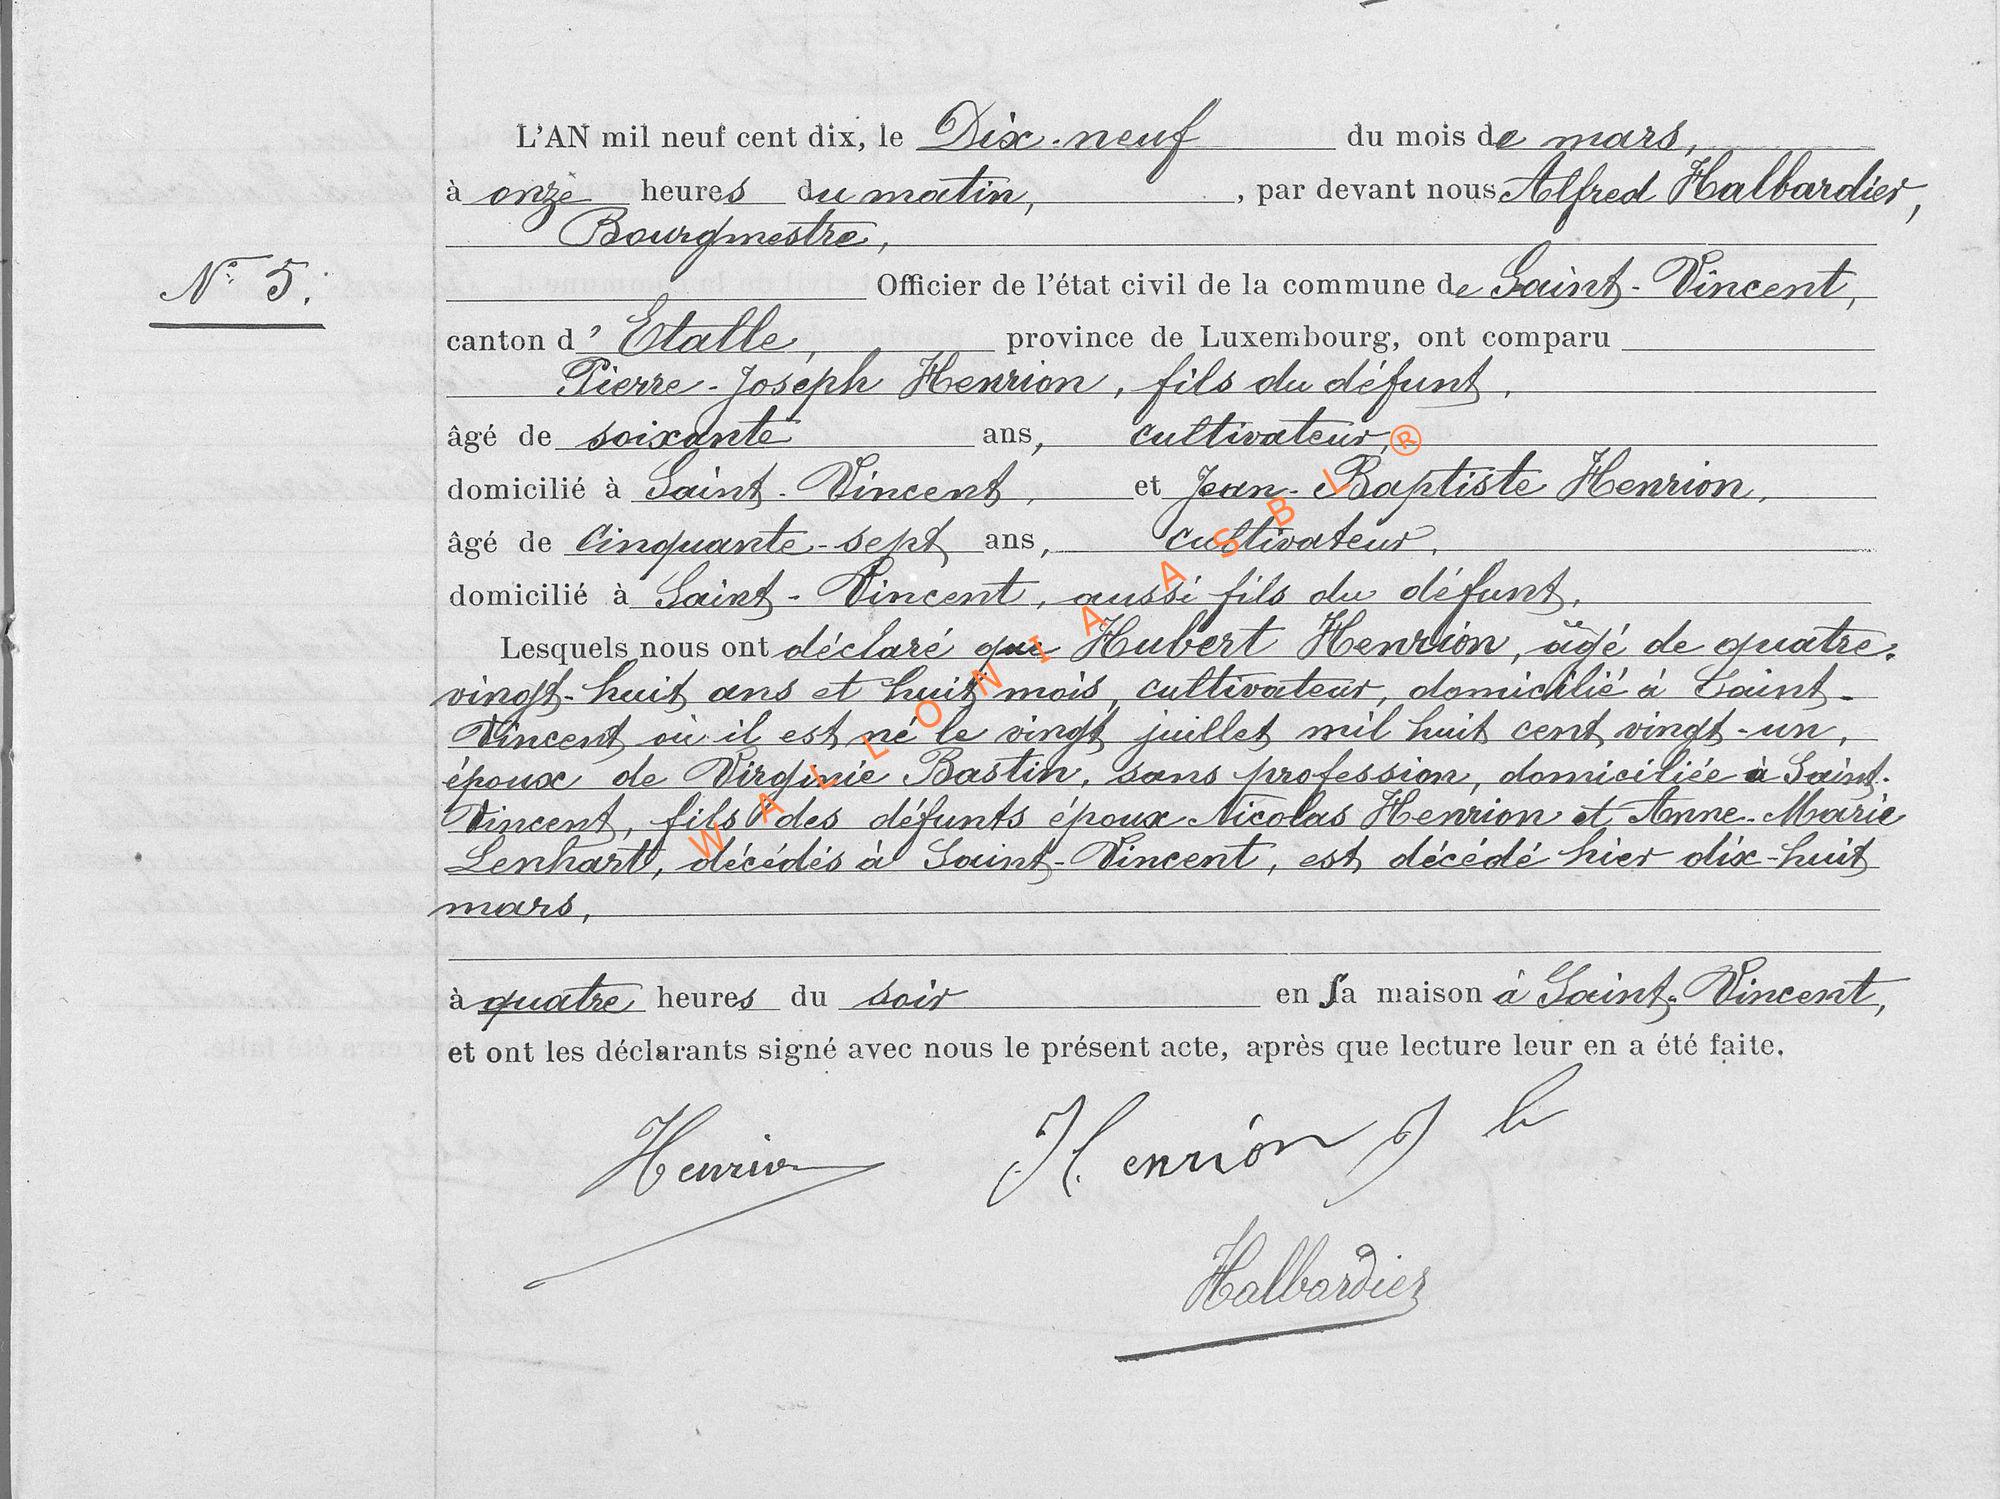 L'AN mil neuf cent dix, le Dix-neuf du mois de mars,
à onze heures du matin, , par devant nous Alfred Halbardier,
Bourgmestre,
N° 5.
Officier de l'état civil de la commune de Saint-Vincent,
canton d'Etalle, province de Luxembourg, ont comparu
Pierre-Joseph Henrion, fils du défunt,
âgé de soixante ans, cultivateur,
domicilié à Saint-Vincent, et Jean-Baptiste Henrion,
âgé de cinquante-sept ans, cultivateur,
domicilié à Saint-Vincent, aussi fils du défunt.
Lesquels nous ont déclaré que Hubert Henrion, âgé de quatre-
vingt-huit ans et huit mois, cultivateur, domicilié à Saint-
Vincent où il est né le vingt juillet mil huit cent vingt-un,
époux de Virginie Bastin, sans profession, domiciliée à Saint-
Vincent, fils des défunts époux Nicolas Henrion et Anne-Marie
Lenhart, décédés à Saint-Vincent, est décédé hier dix-huit
mars,
à quatre heures du soir en sa maison à Saint-Vincent,
et ont les déclarants signé avec nous le présent acte, après que lecture leur en a été faite.
Henrion Henrion J b
Halbardier
WALLONIA ASBL ®